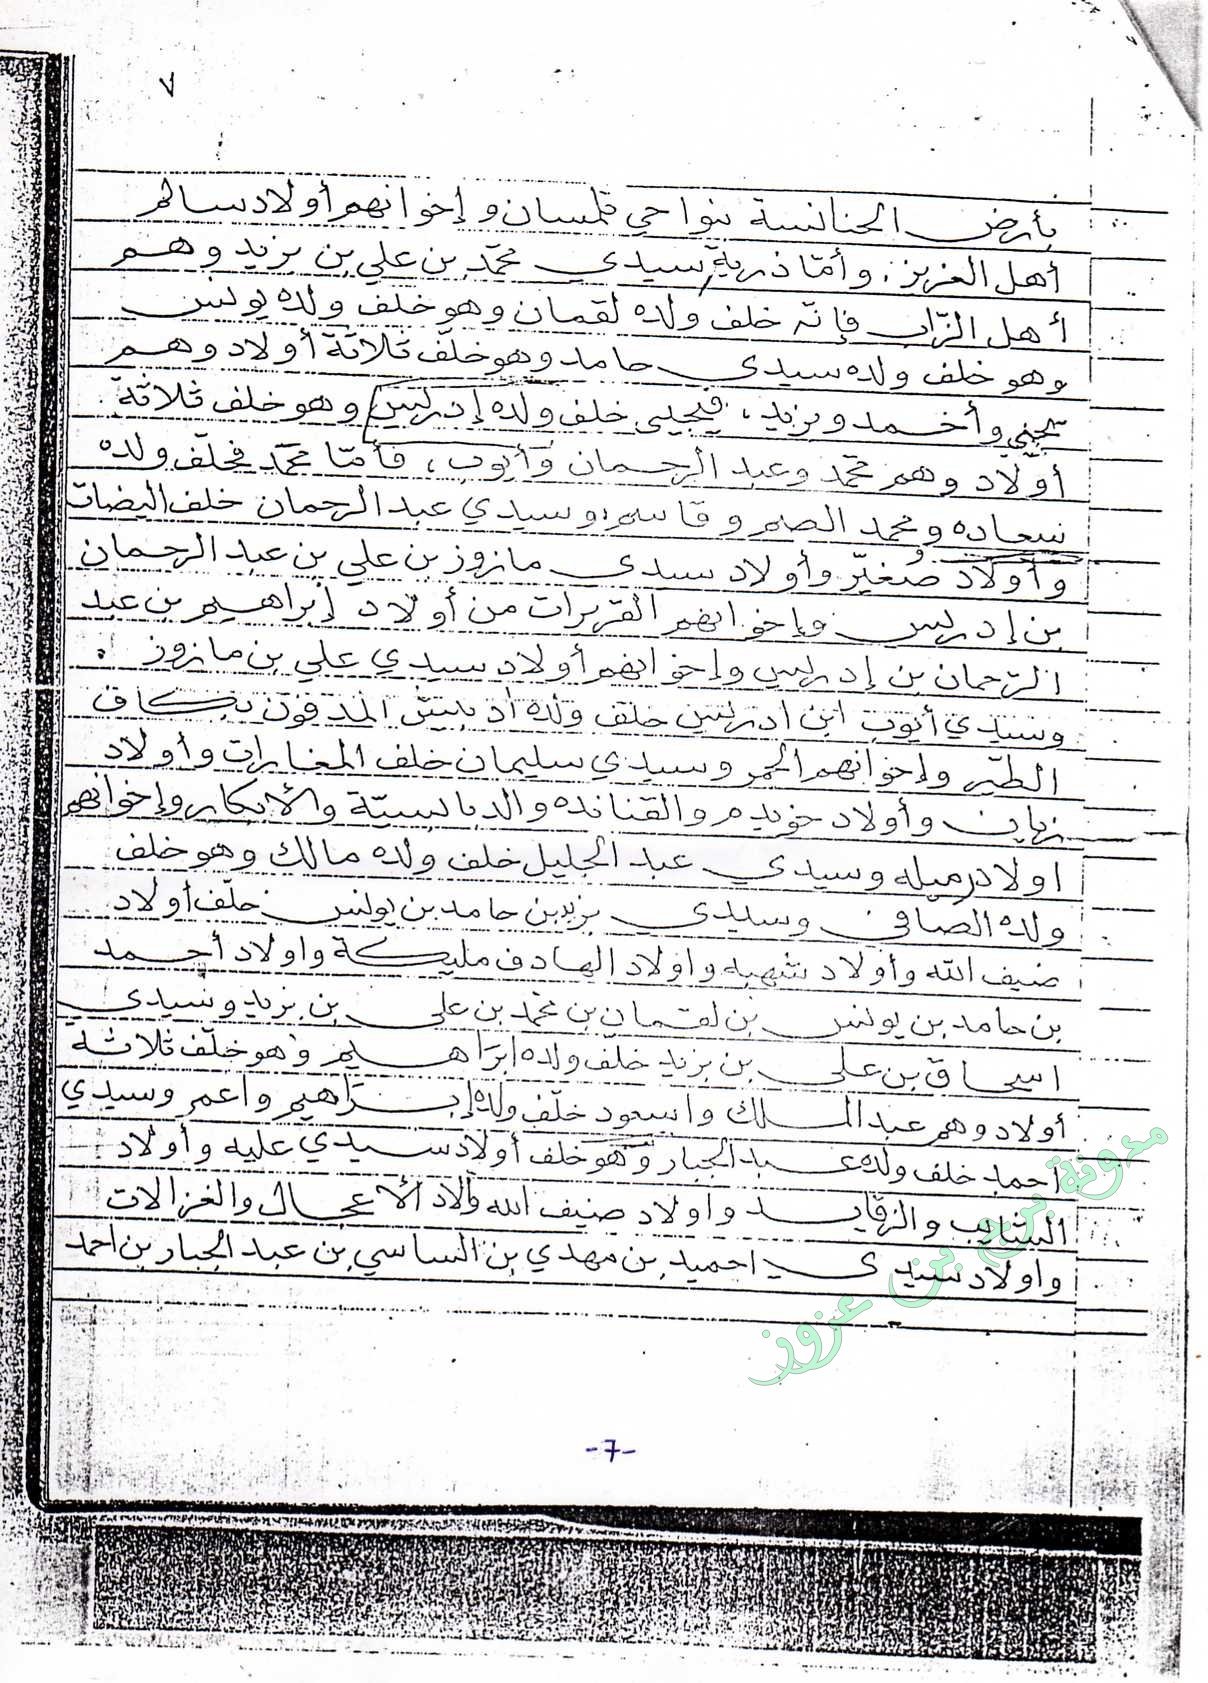 ٧
بأرض الحنانسة بنواحي تلمسان وإخوانهم أولاد سالم
أهل العزيز. وأمّا ذرية سيدي محمّد بن علي بن بزيد وهم
أهل الزّاب فإنّه خلف ولده لقمان وهو خلف ولده يونس
وهو خلف ولده سيدي حامد وهو خلّف ثلاثة أولاد وهم
يحيى وأحمد وبزيد، فيحيى خلف ولده إدريس وهو خلف ثلاثة
أولاد وهم محمّد وعبد الرحمان وأيوب، فأمّا محمّد فخلّف ولده
سعاده ومحمد الصم وقاسم وسيدي عبد الرحمان خلف البضات
وأولاد صُغيّر وأولاد سيدي مازوز بن علي بن عبد الرحمان
بن إدريس وإخوانهم القريرات من أولاد إبراهيم بن عبد
الرّحمان بن إدريس وإخوانهم أولاد سيدي علي بن مازوز.
وسيدي أيوب ابن ادريس خلف ولده المدفون بكاف
الطيّر وإخوانهم الحمر وسيدي سليمان خلف المغارات وأولاد
زيان وأولاد خويدم والقنانده والدبابسيّة والأبكار وإخوانهم
اولاد رميله وسيدي عبد الجليل خلف ولده مالك وهو خلف
ولده الصافي وسيدي بزيد بن حامد بن يونس خلّف أولاد
ضيف الله وأولاد شهبه واولاد الهادف مليكة واولاد أحمد
بن حامد بن يونس بن لقمان بن محمّد بن علي بن بزيد وسيدي
اسحاق بن علي بن بزيد خلّف ولده ابراهيم وهو خلّف ثلاثة
أولاد وهم عبد المالك واسعود خلّف ولده إبراهيم واعمر وسيدي
احمد خلف ولده عبد الجبار وهو خلف أولاد سيدي عليه وأولاد
الشايب والزقايد واولاد ضيف الله وألاد الأعجال والغزالات
واولاد سيدي احميد بن مهدي بن الساسي بن عبد الجبار بن احمد
مدونة برج بن عزوز
-7-